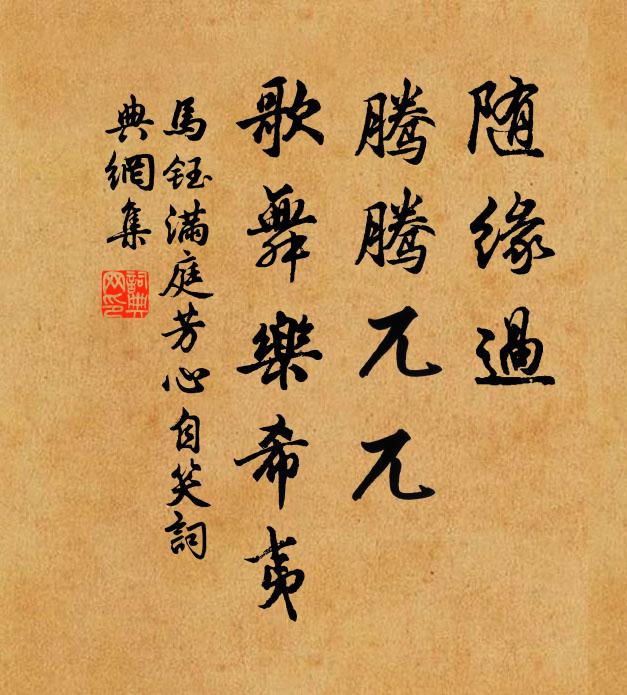 随緣過
騰騰兀兀
歌舞樂希夷
馬鈺滿庭芳心自笑詞
典網集
詞典
网印